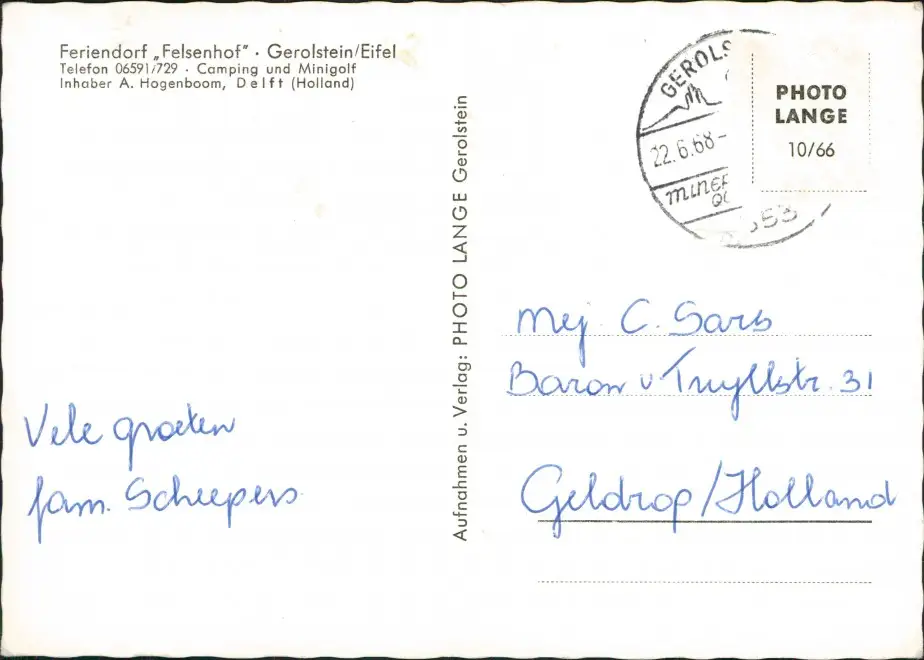 Feriendorf „Felsenhof" · Gerolstein/Eifel
Telefon 06591/729 · Camping und Minigolf
Inhaber A. Hogenboom, Delft (Holland)
Vele groeten
fam. Scheepers
Aufnahmen u. Verlag: PHOTO LANGE Gerolstein
GEROLS
22.6.68-
MINER
553
PHOTO
LANGE
10/66
Mej. C. Sars
Baron v. Tuyllstr. 31
Geldrop/Holland